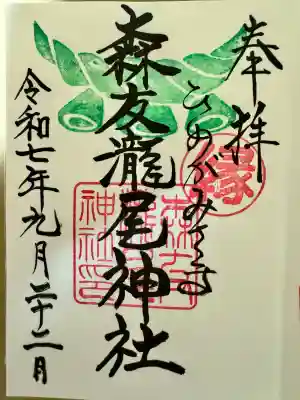 奉拝
ひめがみさま
縁
森友瀧尾神社
神社印
令和七年九月二十二日